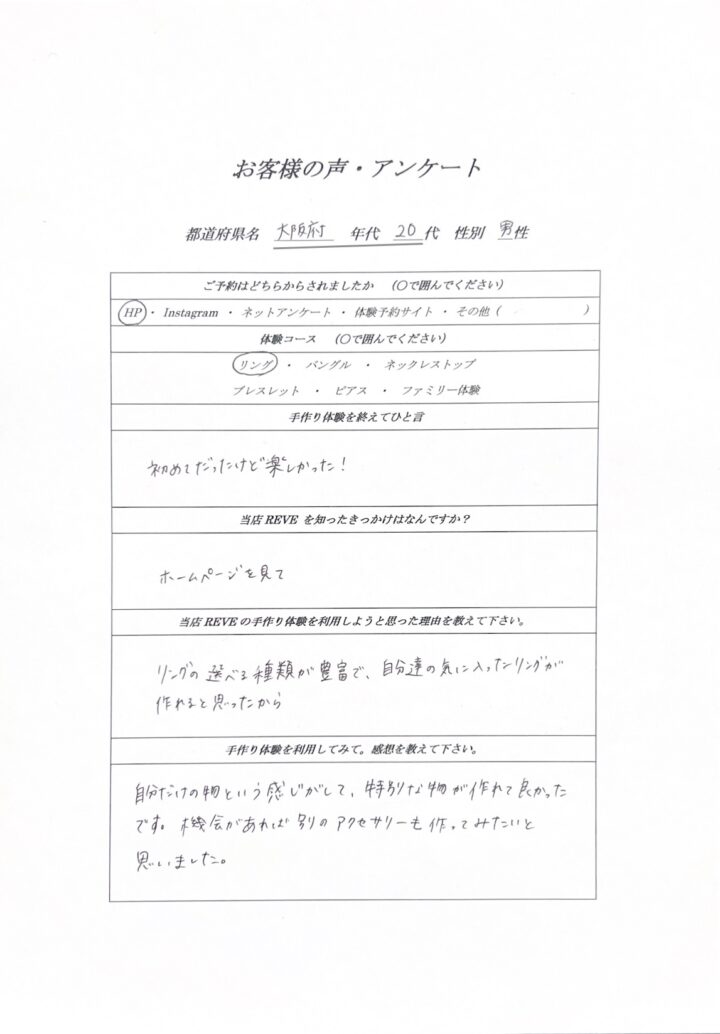 お客様の声・アンケート
都道府県名 大阪府 年代 20代 性別 男性
ご予約はどちらからされましたか （〇で囲んでください）
HP・Instagram ・ ネットアンケート ・ 体験予約サイト ・ その他（ ）
体験コース （〇で囲んでください）
リング ・ バングル ・ ネックレストップ
ブレスレット ・ ピアス ・ ファミリー体験
手作り体験を終えてひと言
初めてだったけど楽しかった！
当店 REVE を知ったきっかけはなんですか？
ホームページを見て
当店 REVE の手作り体験を利用しようと思った理由を教えて下さい。
リングの選べる種類が豊富で、自分達の気に入ったリングが
作れると思ったから
手作り体験を利用してみて。感想を教えて下さい。
自分だけの物という感じがして、特別な物が作れて良かった
です。機会があれば別のアクセサリーも作ってみたいと
思いました。